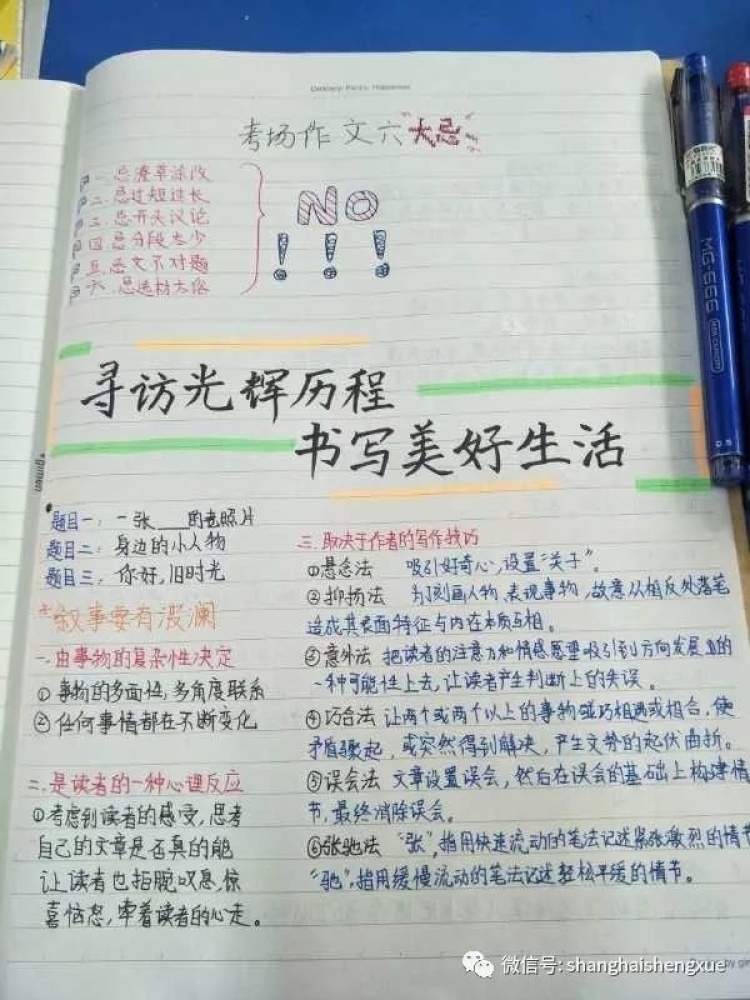 考场作文六"大忌"
一.忌潦草涂改
二.忌过短过长
三.忌开头议论
四.忌分段太少
五.忌文不对题
六.忌选材太俗
NO
!!!
寻访光辉历程
书写美好生活
题目一：一张___的老照片
题目二：身边的小人物
题目三：你好,旧时光
*叙事要有波澜
一.由事物的复杂性决定
①事物的多面性,多角度联系
②任何事情都在不断变化
二.是读者的一种心理反应
①考虑到读者的感受,思考
自己的文章是否真的能
让读者也扼腕叹息,惊
喜恼怒,牵着读者的心走。
三.取决于作者的写作技巧
①悬念法 吸引好奇心,设置"关子"。
②抑扬法 为了刻画人物、表现事物,故意从相反处落笔
造成其表面特征与内在本质互相。
③意外法 把读者的注意力和情感愿望吸引到方向发展的
一种可能性上去,让读者产生判断上的失误。
④巧合法 让两个或两个以上的事物碰巧相遇或相合,使
矛盾骤起,或突然得到解决,产生文势的起伏曲折。
⑤误会法 文章设置误会,然后在误会的基础上构建情
节,最终消除误会。
⑥张驰法 "张",指用快速流动的笔法记述紧张激烈的情节
"驰",指用缓慢流动的笔法记述轻松平缓的情节。
MG-666
0.5
微信号: shanghaishengxue